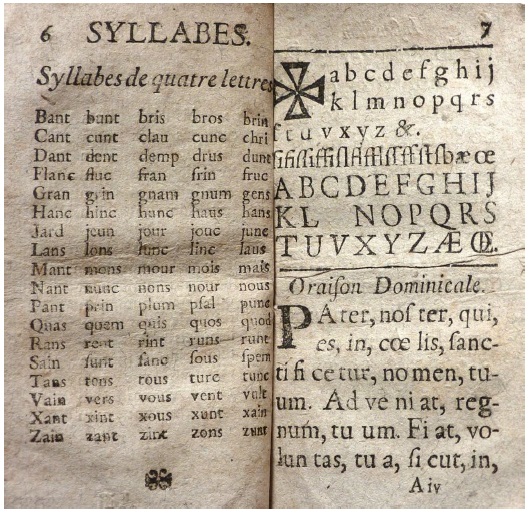 6 SYLLABES.
Syllabes de quatre lettres
Bant bunt bris bros brin
Cant cunt clau cunc chri
Dant dent demp drus dunt
Flanc fluc fran frin fruc
Gran grin gnam gnum gens
Hanc hinc hunc haus hans
Jard jeun jour jouc junc
Lans lons lunc linc laus
Mant mons mour mois mais
Nant nunc nons nour nous
Pant prin plum pſal punc
Quas quem quis quos quod
Rans rent rint runs runt
Sain ſunt ſanc ſous ſpem
Tans tons tous turc tunc
Vain vers vous vent vult
Xant xint xous xunt xain
Zain zant zint zons zunt
7
a b c d e f g h i j
k l m n o p q r s
ſ t u v x y z &.
æ œ
A B C D E F G H I J
K L N O P Q R S
T U V X Y Z Æ Œ.
Oraiſon Dominicale.
PAter, noſ ter, qui,
es, in, cœ lis, ſanc-
ti fi ce tur, no men, tu-
um. Ad ve ni at, reg-
num, tu um. Fi at, vo-
lun tas, tu a, ſi cut, in,
A iv